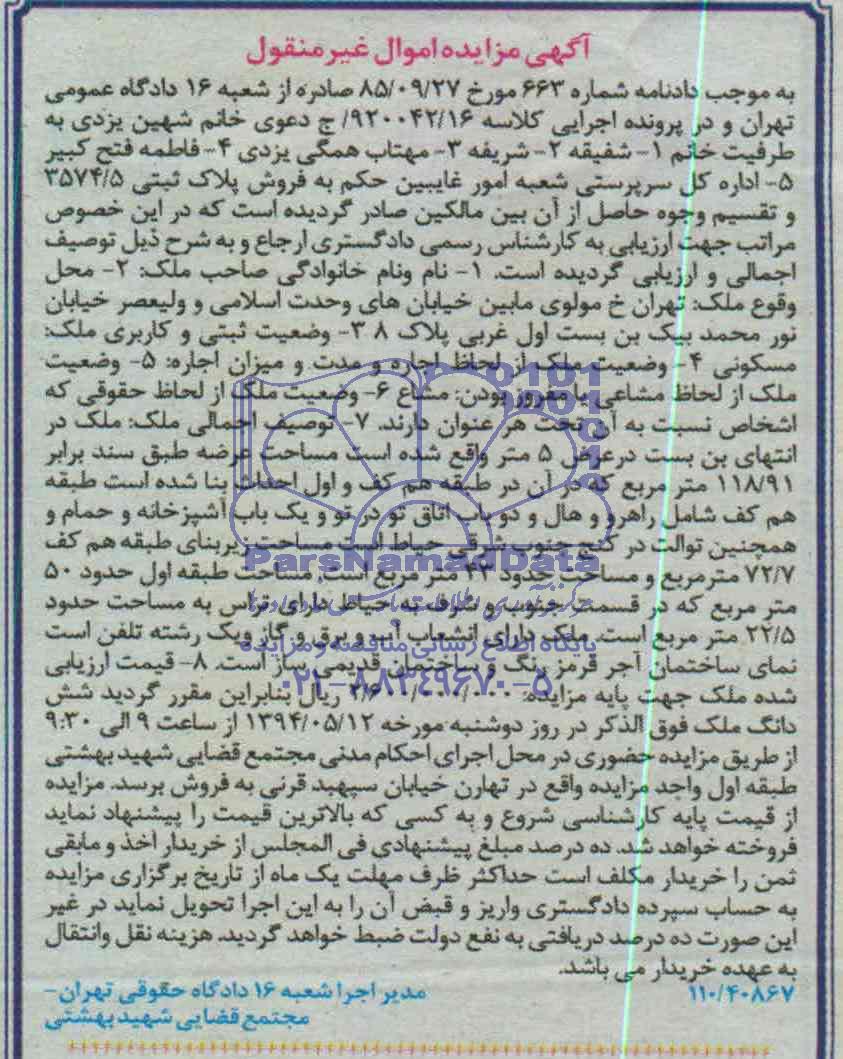 آگهی مزایده اموال غیر منقول
به موجب دادنامه شماره ۶۶۳ مورخ ۸۵/۰۹/۲۷ صادره از شعبه ۱۶ دادگاه عمومی
تهران و در پرونده اجرایی کلاسه ۹۲۰۰۴۲/۱۶/ ج دعوی خانم شهین یزدی به
طرفیت خانم ۱- شفیقه ۲- شریفه ۳- مهتاب همگی یزدی ۴- فاطمه فتح کبیر
۵- اداره کل سرپرستی شعبه امور غایبین حکم به فروش پلاک ثبتی ۳۵۷۴/۵
و تقسیم وجوه حاصل از آن بین مالکین صادر گردیده است که در این خصوص
مراتب جهت ارزیابی به کارشناس رسمی دادگستری ارجاع و به شرح ذیل توصیف
اجمالی و ارزیابی گردیده است. ۱- نام ونام خانوادگی صاحب ملک: ۲- محل
وقوع ملک: تهران خ مولوی مابین خیابان های وحدت اسلامی و ولیعصر خیابان
نور محمد بیک بن بست اول غربی پلاک ۸ ۳- وضعیت ثبتی و کاربری ملک:
مسکونی ۴- وضعیت ملک از لحاظ اجاره و مدت و میزان اجاره: ۵- وضعیت
ملک از لحاظ مشاعی یا مفروز بودن: مشاع ۶- وضعیت ملک از لحاظ حقوقی که
اشخاص نسبت به آن تحت هر عنوان دارند. ۷- توصیف اجمالی ملک: ملک در
انتهای بن بست درعرض ۵ متر واقع شده است مساحت عرضه طبق سند برابر
۱۱۸/۹۱ متر مربع که در آن در طبقه هم کف و اول احداث بنا شده است طبقه
هم کف شامل راهرو و هال و دو باب اتاق تو در تو و یک باب آشپزخانه و حمام و
همچنین توالت در کنج جنوب شرقی حیاط است مساحت زیربنای طبقه هم کف
۷۲/۷ مترمربع و مساحت حدود ۴۲ متر مربع است. مساحت طبقه اول حدود ۵۰
متر مربع که در قسمت جنوب و شرف به حیاط دارای تراس به مساحت حدود
۲۲/۵ متر مربع است. ملک دارای انشعاب آب و برق و گاز ویک رشته تلفن است
نمای ساختمان آجر قرمز رنگ و ساختمان قدیمی ساز است. ۸- قیمت ارزیابی
شده ملک جهت پایه مزایده: ۰۰۰/۰۰۰/ ریال بنابراین مقرر گردید شش
دانگ ملک فوق الذکر در روز دوشنبه مورخه ۱۳۹۴/۰۵/۱۲ از ساعت ۹ الی ۹:۳۰
از طریق مزایده حضوری در محل اجرای احکام مدنی مجتمع قضایی شهید بهشتی
طبقه اول واجد مزایده واقع در تهارن خیابان سپهبد قرنی به فروش برسد. مزایده
از قیمت پایه کارشناسی شروع و به کسی که بالاترین قیمت را پیشنهاد نماید
فروخته خواهد شد. ده درصد مبلغ پیشنهادی فی المجلس از خریدار اخذ و مابقی
ثمن را خریدار مکلف است حداکثر ظرف مهلت یک ماه از تاریخ برگزاری مزایده
به حساب سپرده دادگستری واریز و قبض آن را به این اجرا تحویل نماید در غیر
این صورت ده درصد دریافتی به نفع دولت ضبط خواهد گردید. هزینه نقل وانتقال
به عهده خریدار می باشد.
۱۱۰/۴۰۸۶۷ مدیر اجرا شعبه ۱۶ دادگاه حقوقی تهران-
مجتمع قضایی شهید بهشتی
ParsNamadData
پایگاه اطلاع رسانی مناقصه و مزایده
۰۲۱-۸۸۳۴۹۶۷۰-۵